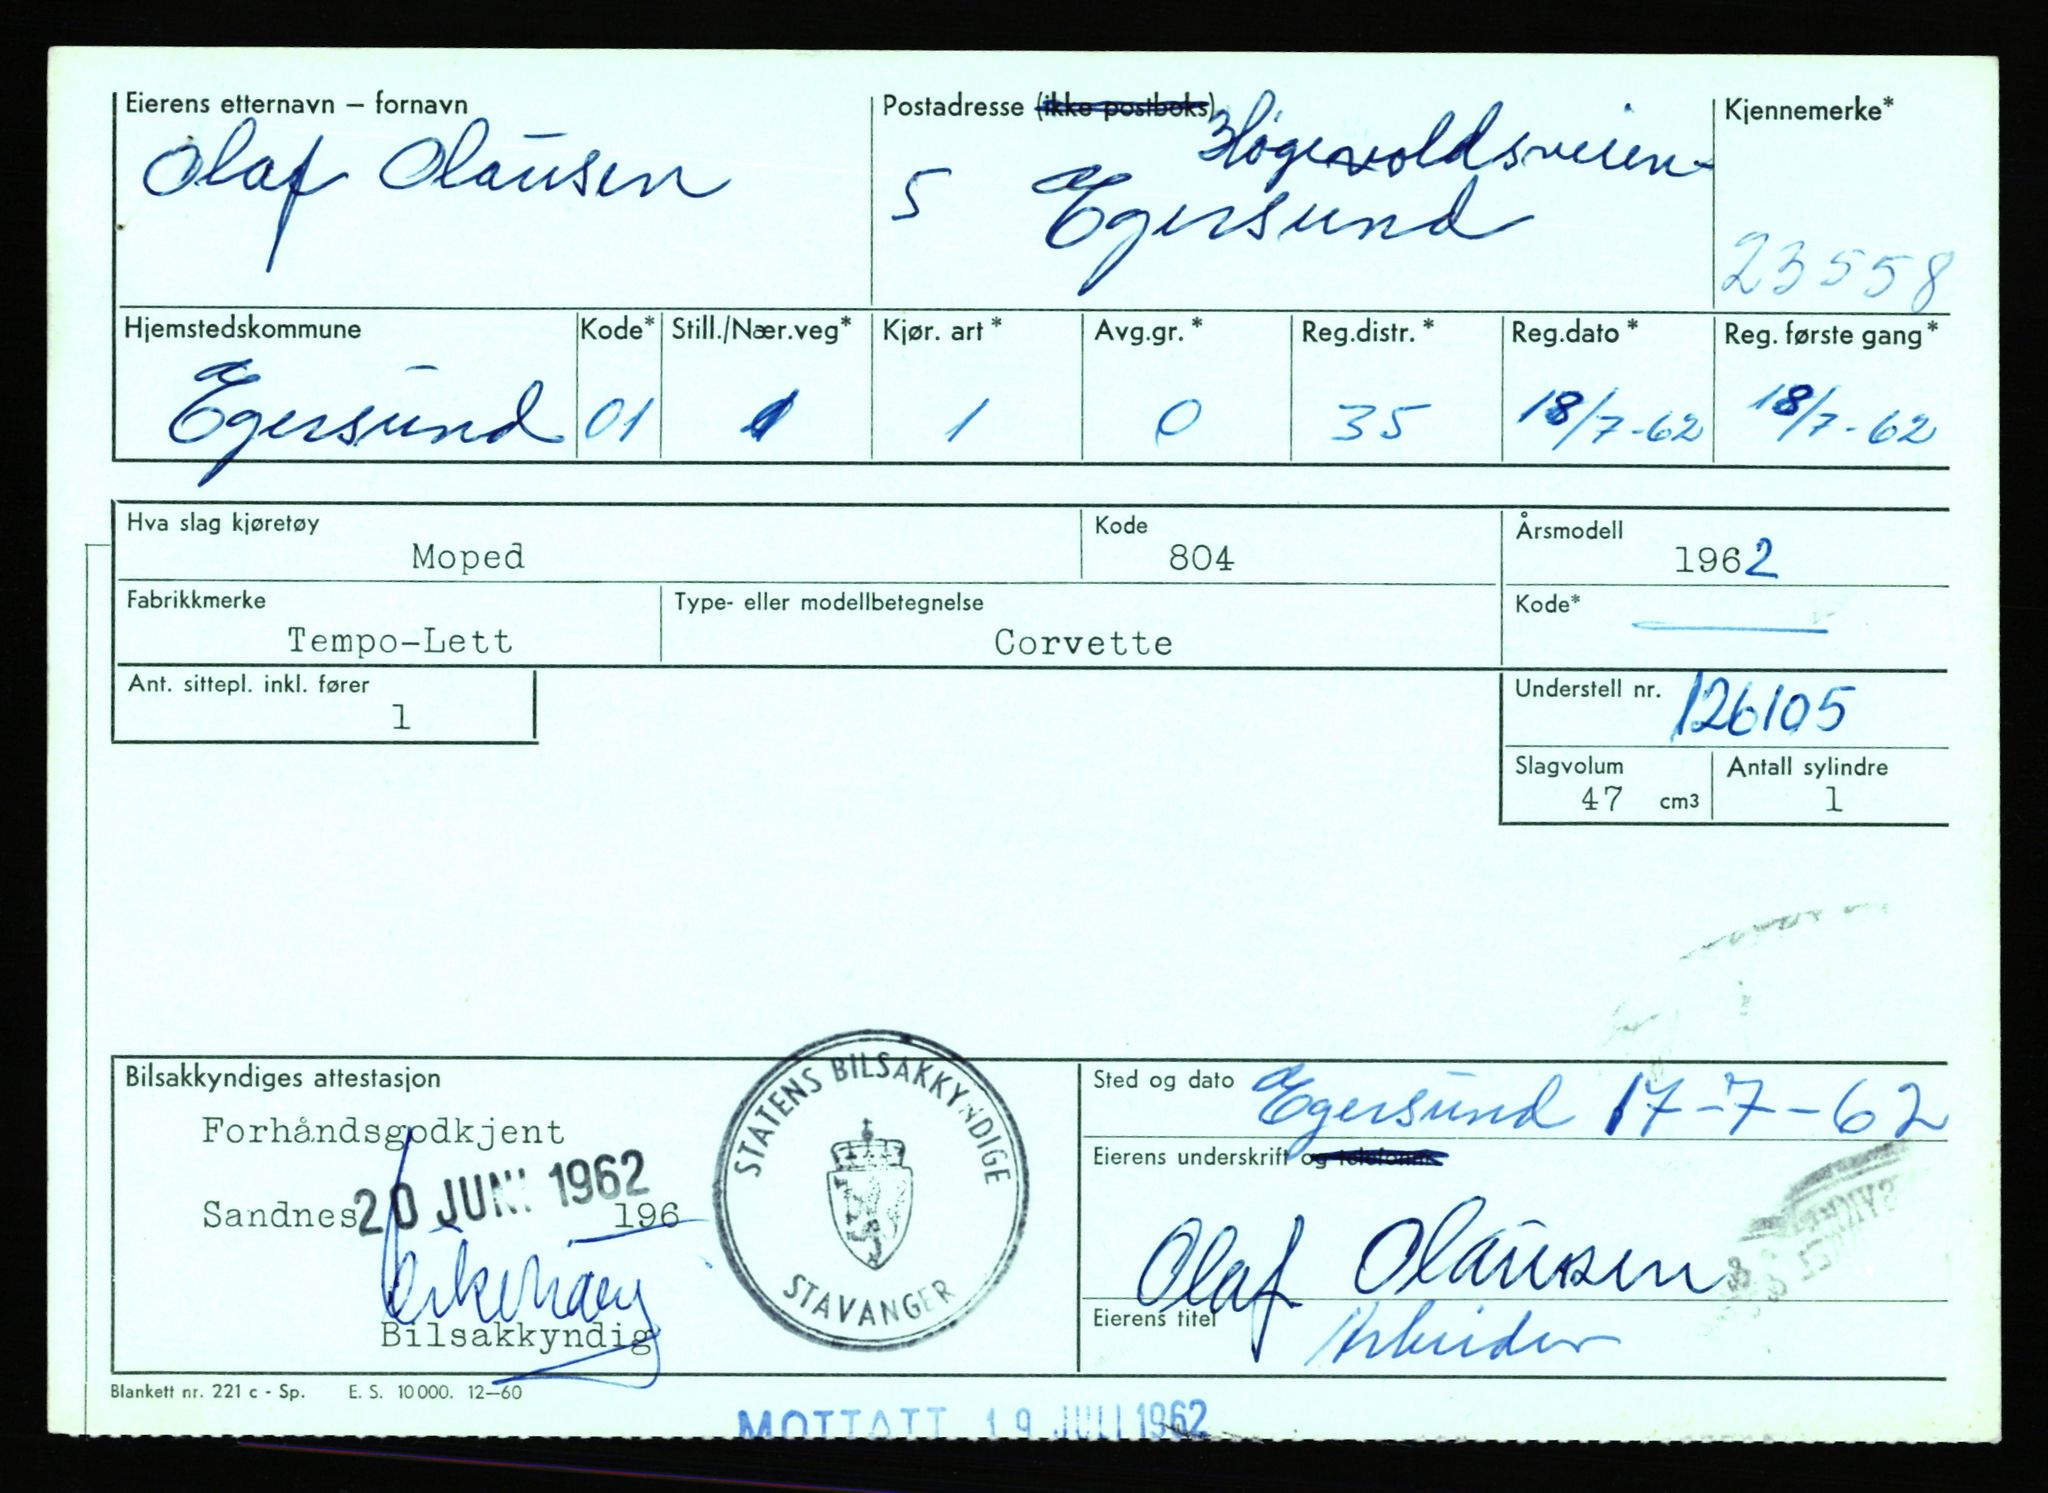 Eierens etternavn – fornavn
Olaf Olausen
Postadresse (ikke postboks)
Høgevoldsveien
5 Egersund
Kjennemerke*
23558
Hjemstedskommune
Egersund
Kode*
01
Still./Nær.veg*
1
Kjør. art *
1
Avg.gr. *
0
Reg.distr. *
35
Reg.dato *
18/7-62
Reg. første gang*
18/7-62
Hva slag kjøretøy
Moped
Kode
804
Årsmodell
1962
Fabrikkmerke
Tempo-Lett
Type- eller modellbetegnelse
Corvette
Kode*
Ant. sittepl. inkl. fører
1
Understell nr. 126105
Slagvolum
47 cm3
Antall sylindre
1
Bilsakkyndiges attestasjon
Forhåndsgodkjent
Sandnes 20 JUNI 1962
196
Bilsakkyndig
STATENS BILSAKKYNDIGE
STAVANGER
Sted og dato Egersund 17-7-62
Eierens underskrift og telefonnr.
Olaf Olausen
Eierens titel
Arbeider
Blankett nr. 221 c - Sp. E. S. 10000. 12—60
MOTTATT 19 JULI 1962